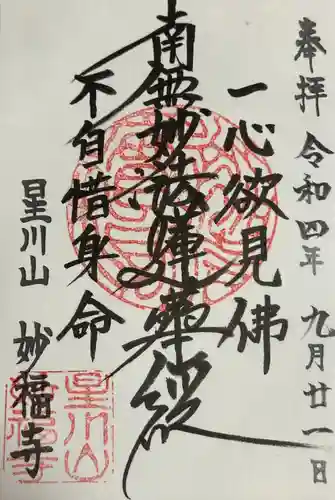 奉拝 令和四年 九月廿一日
一心欲見佛
南無妙法蓮華経
不自惜身命
星川山 妙福寺
星川山